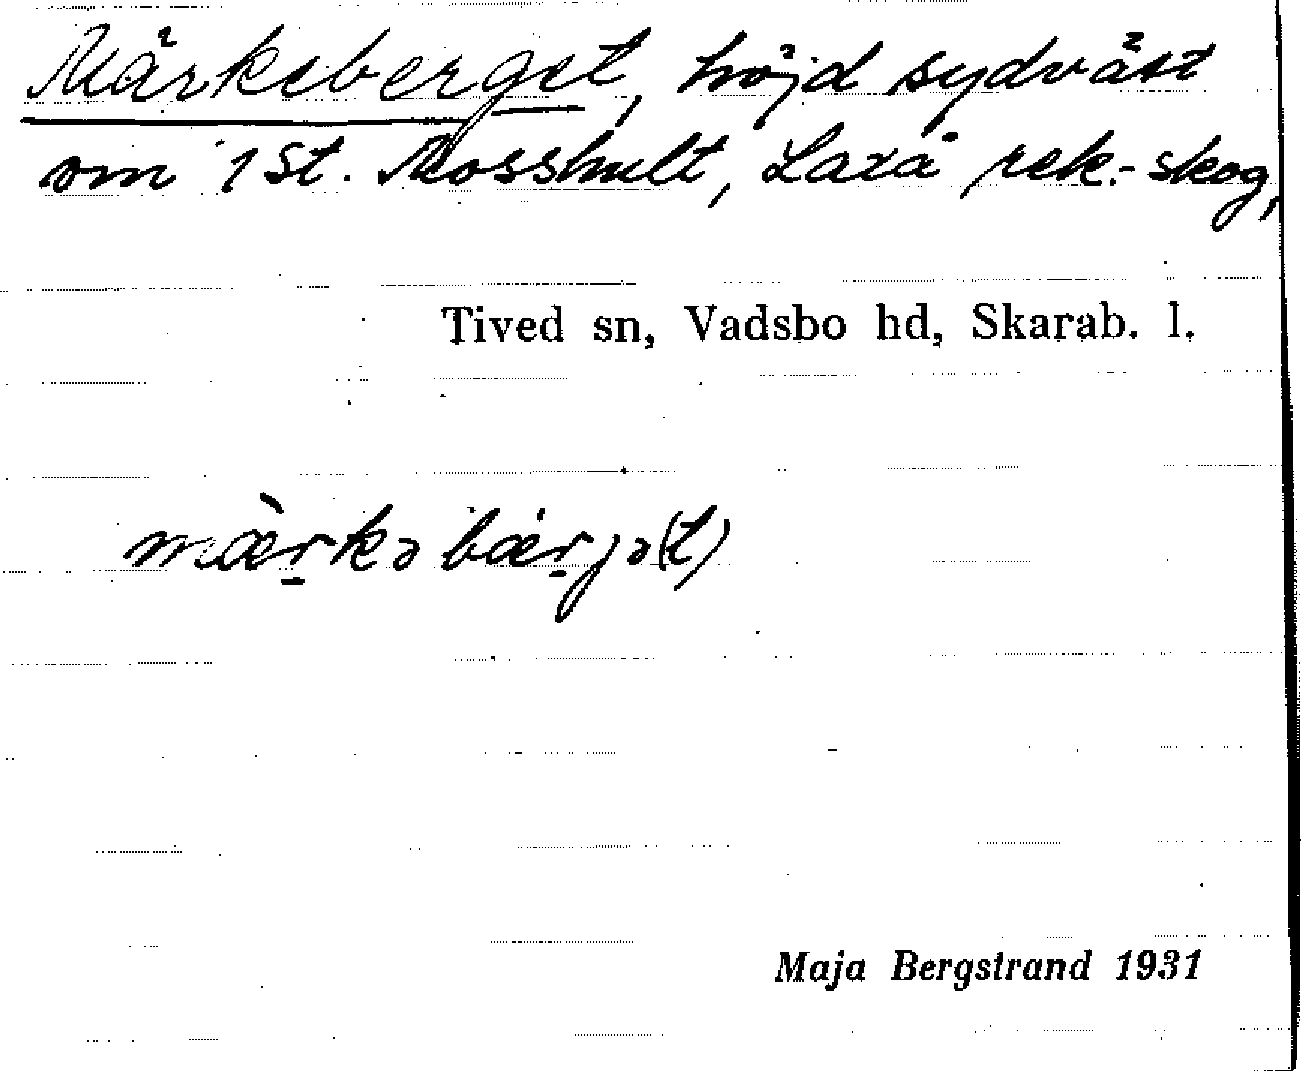 Märkeberget, höjd sydväst
om 1 St. Mosshult, Laxå rek.-skog,
Tived sn, Vadsbo hd, Skarab. l.
mæ̀r̠kə bær̠jə(t)
Maja Bergstrand 1931